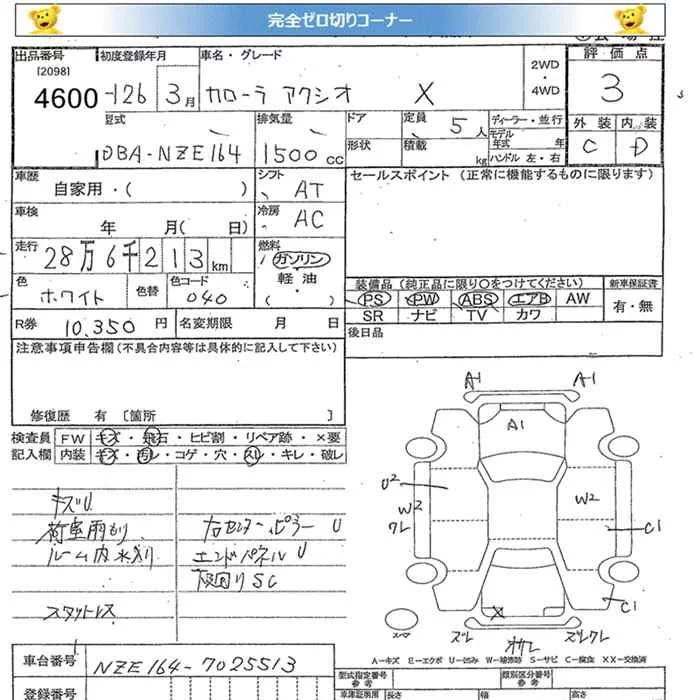 完全ゼロ切りコーナー
出品番号 [2098] 4600
初度登録年月 126 3月
車名・グレード カローラ アクシオ X
2WD・4WD
評価点 3
外装 C 内装 D
型式 DBA-NZE164
排気量 1500cc
ドア
形状
定員 5人
積載 kg
ディーラー・並行
モデル年式 年式
ハンドル 左・右
車歴 自家用・( )
シフト AT
セールスポイント (正常に機能するものに限ります)
車検 年 月( 日)
冷房 AC
走行 28万6千213km
燃料 ガソリン・軽油・( )
色 ホワイト 色替 色コード 040
装備品 (純正品に限り○をつけてください) 新車保証書
PS PW ABS エアB AW 有・無
SR ナビ TV カワ
R券 10,350円 名変期限 月 日
後日品
注意事項申告欄 (不具合内容等は具体的に記入して下さい)
修復歴 有 [箇所 ]
検査員 FW キズ・飛石・ヒビ割・リペア跡・×要
記入欄 内装 キズ・汚レ・コゲ・穴・スレ・キレ・破レ
キズU
荷室雨もり
ルーム内水入り
スタットレス
右センターピラー U
エンドパネル U
下回りSC
A1 A1
A1
U2
W2
クレ
W2
C1
C1
X
スレ
A-キズ E-エクボ U-凹み W-補修跡 S-サビ C-腐食 XX-交換済
車台番号 NZE164-7025513
型式指定番号 参考
類別区分番号 参考
登録番号
車庫証明用
長さ
幅
高さ